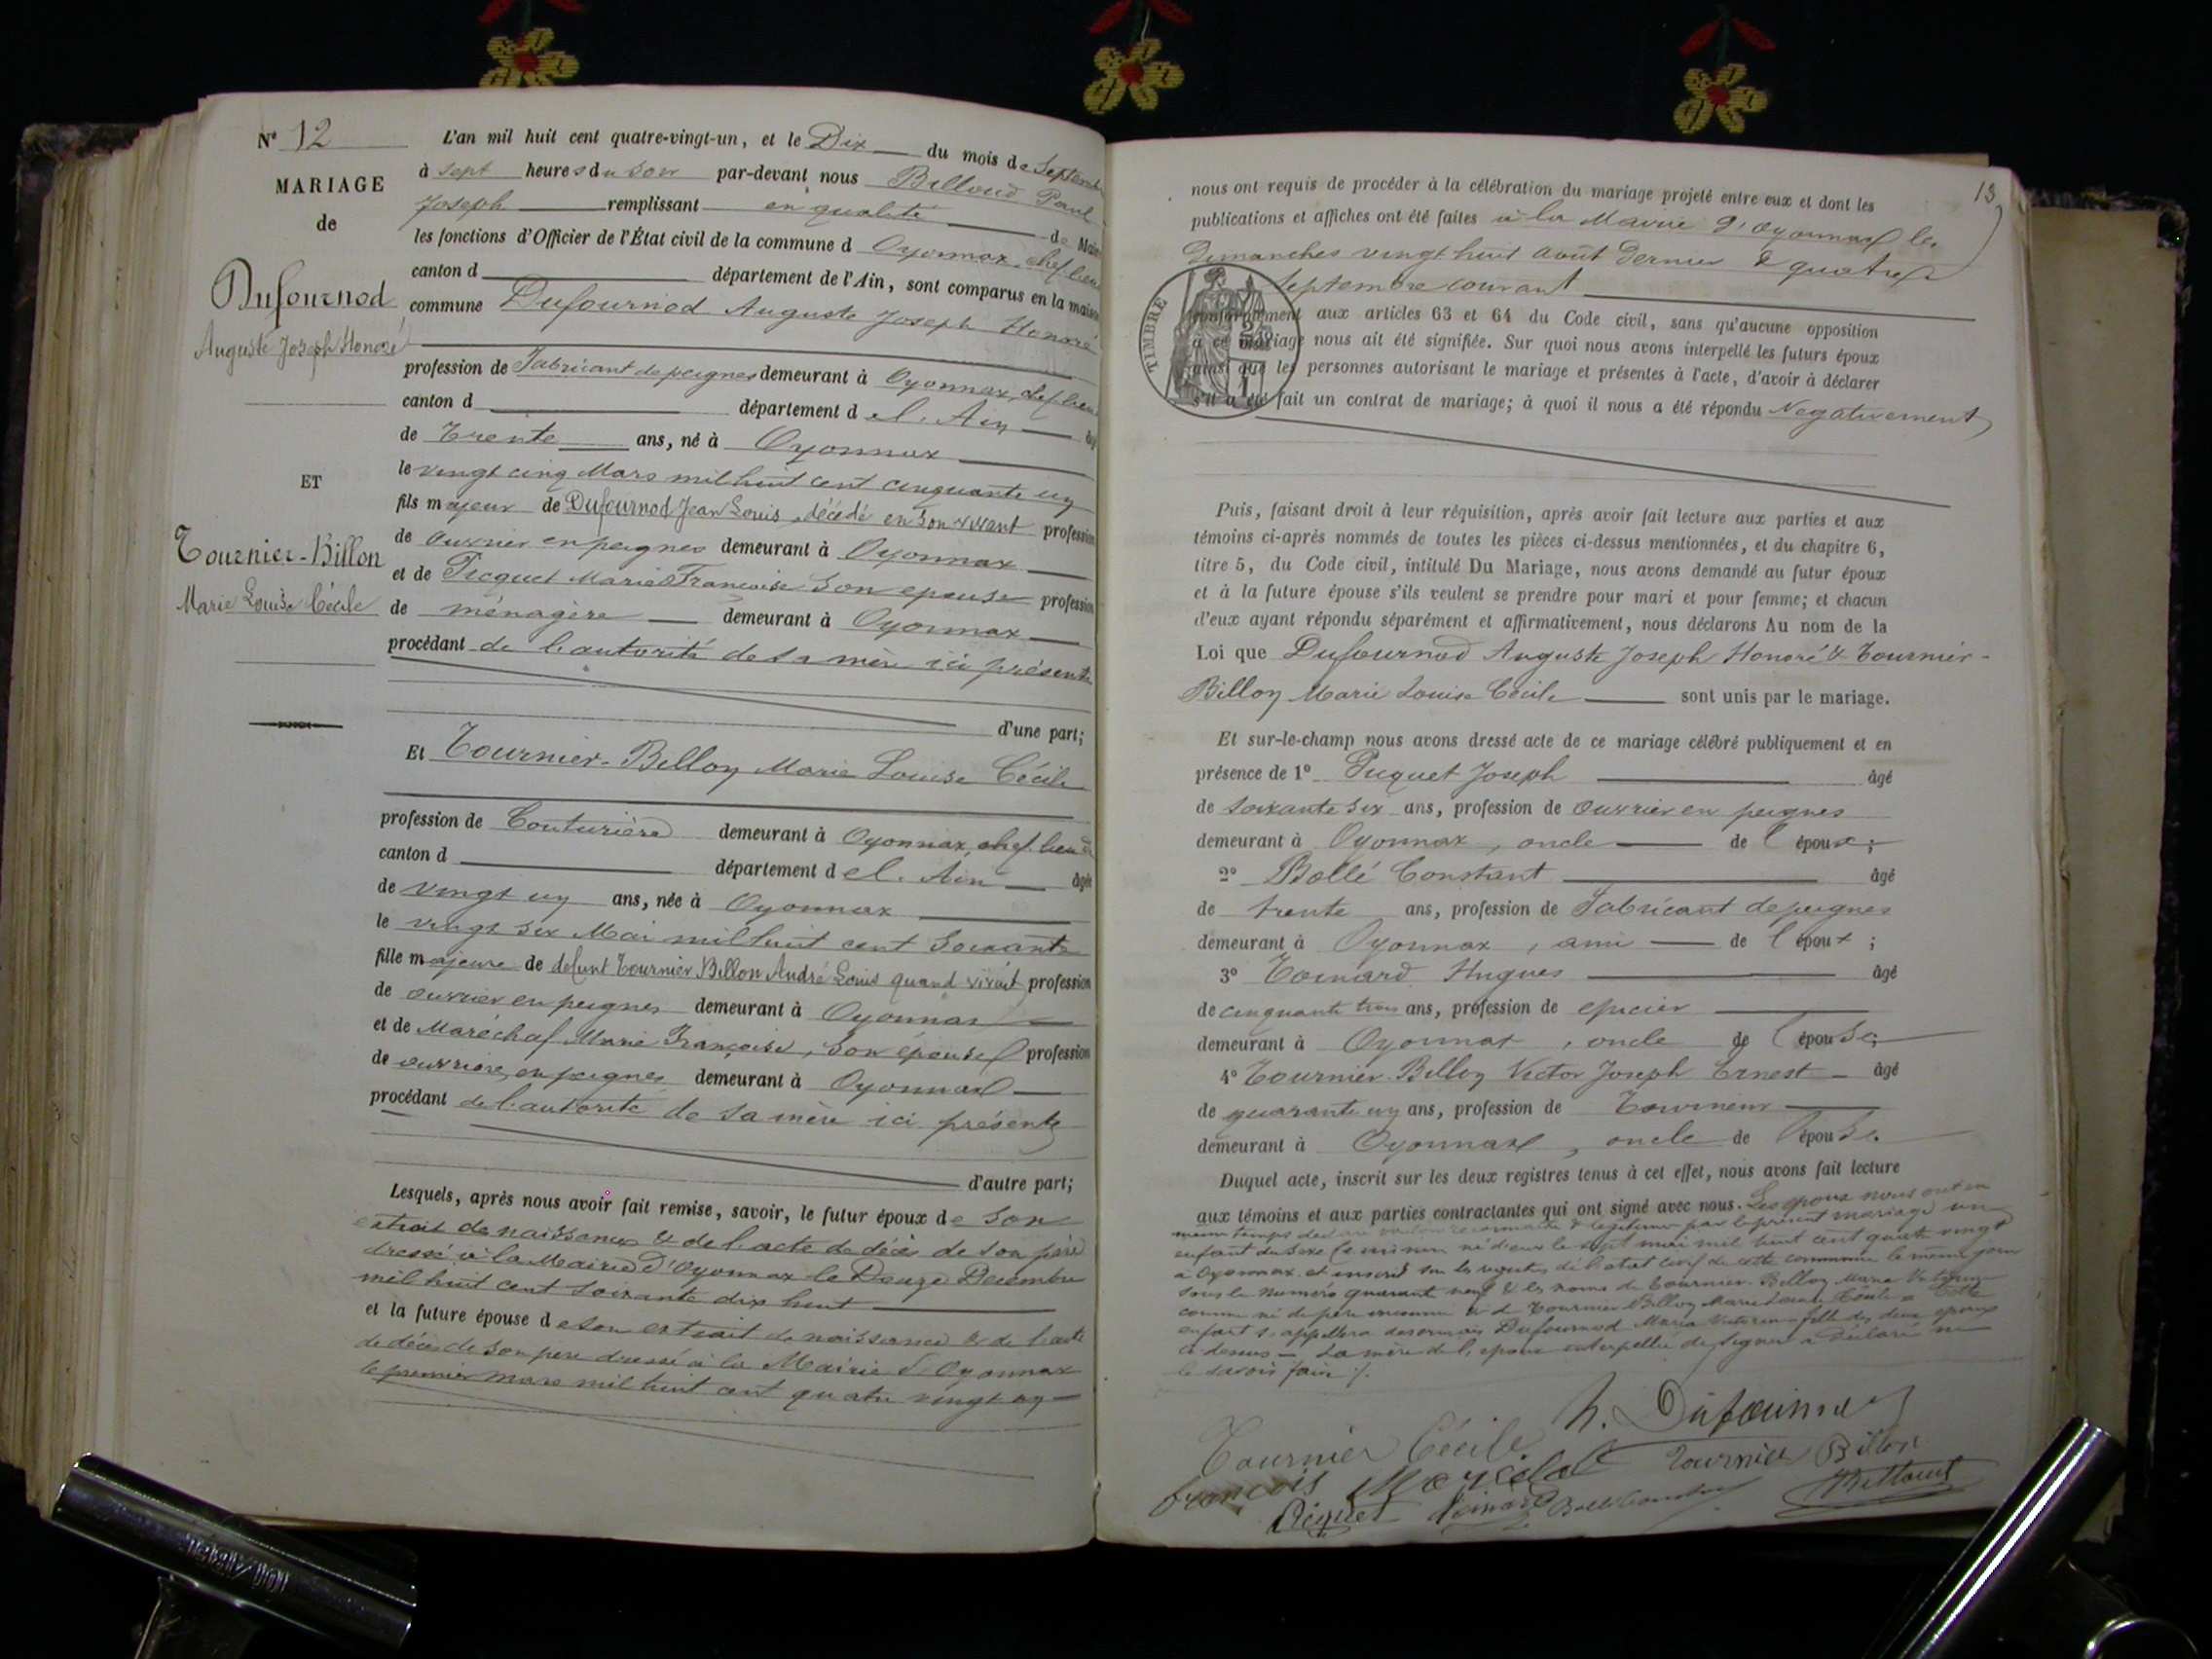 N° 12
MARIAGE
de
Dufournod
Auguste Joseph Honoré
ET
Tournier-Billon
Marie Louise Cécile
L'an mil huit cent quatre-vingt-un, et le Dix du mois de Septembre
à sept heures du soir par-devant nous Billoud Paul
Joseph remplissant en qualité de Maire
les fonctions d'Officier de l'État civil de la commune d Oyonnax, chef lieu
canton d département de l'Ain, sont comparus en la maison
commune Dufournod Auguste Joseph Honoré
profession de Fabricant de peignes demeurant à Oyonnax, chef lieu
canton d département d el. Ain âgé
de Trente ans, né à Oyonnax
le vingt cinq Mars mil huit cent cinquante un
fils majeur de Dufournod Jean Louis, décédé en son vivant profession
de ouvrier en peignes demeurant à Oyonnax
et de Picquet Marie Françoise son épouse profession
de ménagère demeurant à Oyonnax
procédant de l'autorité de sa mère ici présente
d'une part;
Et Tournier-Billon Marie Louise Cécile
profession de Couturière demeurant à Oyonnax, chef lieu de
canton d département d el. Ain âgée
de vingt un ans, née à Oyonnax
le vingt six Mai mil huit cent soixante
fille majeure de defunt Tournier Billon André Louis quand vivait profession
de ouvrier en peignes demeurant à Oyonnax
et de Maréchal Marie Françoise, son épouse profession
de ouvrière en peignes demeurant à Oyonnax
procédant de l'autorité de sa mère ici présente
d'autre part;
Lesquels, après nous avoir fait remise, savoir, le futur époux de son
extrait de naissance & de l'acte de décès de son père
dressé à la Mairie d'Oyonnax le Douze Décembre
mil huit cent soixante dix huit
et la future épouse de son extrait de naissance & de l'acte
de décès de son père dressé à la Mairie d'Oyonnax
le premier mars mil huit cent quatre vingt un
13
nous ont requis de procéder à la célébration du mariage projeté entre eux et dont les
publications et affiches ont été faites à la Mairie d'Oyonnax les
Dimanches vingt huit août dernier & quatre
Septembre courant
TIMBRE
conformément aux articles 63 et 64 du Code civil, sans qu'aucune opposition
à ce mariage nous ait été signifiée. Sur quoi nous avons interpellé les futurs époux
ainsi que les personnes autorisant le mariage et présentes à l'acte, d'avoir à déclarer
s'il a été fait un contrat de mariage; à quoi il nous a été répondu Negativement
Puis, faisant droit à leur réquisition, après avoir fait lecture aux parties et aux
témoins ci-après nommés de toutes les pièces ci-dessus mentionnées, et du chapitre 6,
titre 5, du Code civil, intitulé Du Mariage, nous avons demandé au futur époux
et à la future épouse s'ils veulent se prendre pour mari et pour femme; et chacun
d'eux ayant répondu séparément et affirmativement, nous déclarons Au nom de la
Loi que Dufournod Auguste Joseph Honoré & Tournier-
Billon Marie Louise Cécile sont unis par le mariage.
Et sur-le-champ nous avons dressé acte de ce mariage célébré publiquement et en
présence de 1° Picquet Joseph âgé
de soixante six ans, profession de ouvrier en peignes
demeurant à Oyonnax, oncle de l époux;
2° Bollé Constant âgé
de trente ans, profession de Fabricant de peignes
demeurant à Oyonnax, ami de l époux;
3° Toinard Hugues âgé
de cinquante trois ans, profession de epicier
demeurant à Oyonnax, oncle de l épouse;
4° Tournier-Billon Victor Joseph Ernest âgé
de quarante un ans, profession de Tourneur
demeurant à Oyonnax, oncle de l épouse.
Duquel acte, inscrit sur les deux registres tenus à cet effet, nous avons fait lecture
aux témoins et aux parties contractantes qui ont signé avec nous. Les époux nous ont en
même temps déclaré vouloir reconnaître & légitimer par le présent mariage un
enfant du sexe féminin né d'eux le sept mai mil huit cent quatre vingt
à Oyonnax et inscrit sur les registres de l'état civil de cette commune le même jour
sous le numéro quarante neuf & les noms de Tournier-Billon Maria
comme né de père inconnu & de Tournier Billon Marie Louise Cécile
enfant s'appellera désormais Dufournod Maria fille des deux époux
ci dessus La mère de l'époux interpellée de signer a déclaré ne
le savoir faire
h. Dufournod
Tournier Cécile
Tournier Billon
françois Maréchal
Picquet Toinard Bollé Constant
Billoud